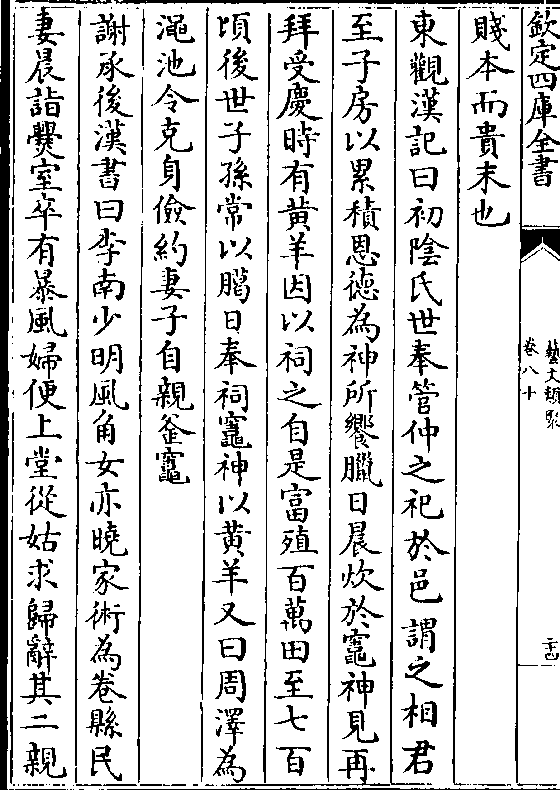 欽定四庫全書
藝文類聚
卷八十
二十四
賤本而貴末也
東觀漢記曰初陰氏世奉管仲之祀於邑謂之相君
至子房以累積恩德為神所饗臘日晨炊於竈神見再
拜受慶時有黃羊因以祠之自是富殖百萬田至七百
頃後世子孫常以臈日奉祠竈神以黃羊又曰周澤為
澠池令克身儉約妻子自親釜竈
謝承後漢書曰李南少明風角女亦曉家術為卷縣民
妻晨詣爨室卒有暴風婦便上堂從姑求歸辭其二親